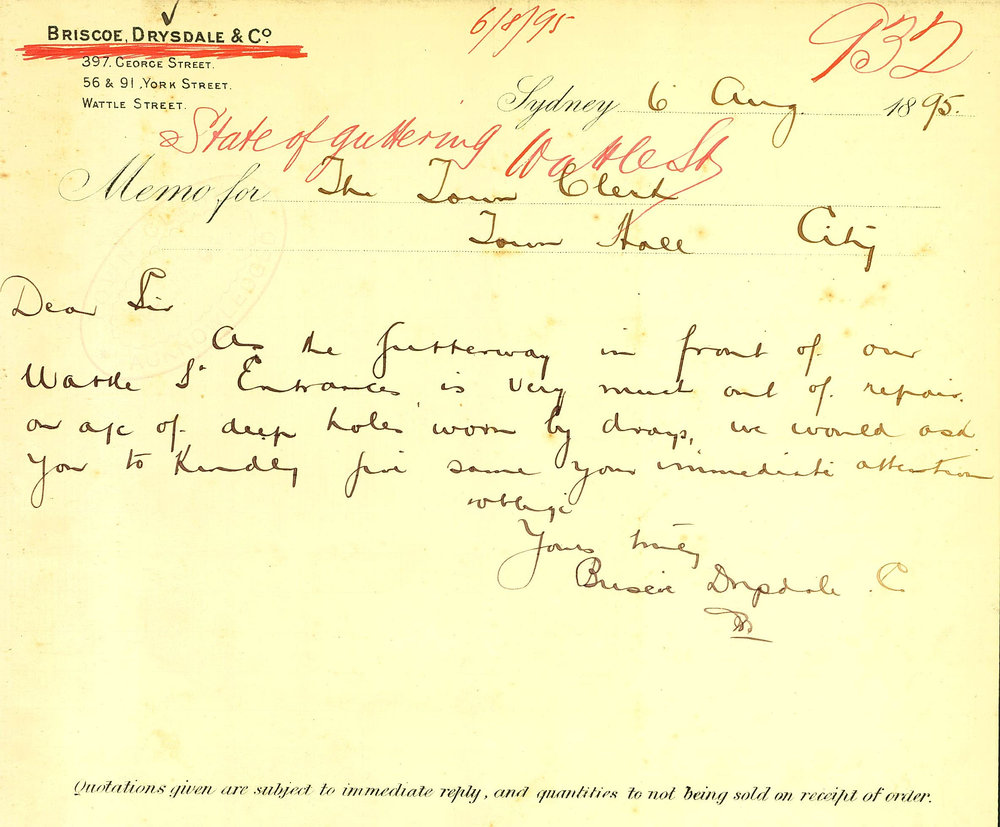 6/8/95
932
BRISCOE, DRYSDALE & Co.
397. GEORGE STREET.
56 & 91, YORK STREET.
WATTLE STREET.
Sydney 6 Aug. 1895.
State of guttering Wattle St
Memo for The Town Clerk
Town Hall City
Dear Sir
As the gutterway in front of our
Wattle St Entrances is very much out of repair.
on a/c of deep holes worn by drays, we would ask
you to Kindly give same your immediate attention
& oblige
Yours truly
Briscoe Drysdale & Co
Quotations given are subject to immediate reply, and quantities to not being sold on receipt of order.